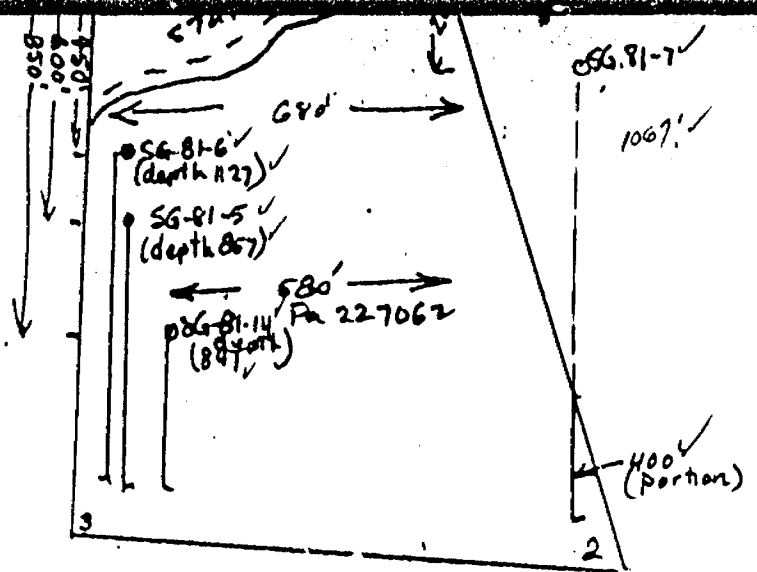 850'
600'
450'
680'
SG-81-7
1067'
SG-81-6
(depth 1127)
SG-81-5
(depth 857)
580'
Pa 227062
SG-81-14
(depth
847)
400
(portion)
3
2